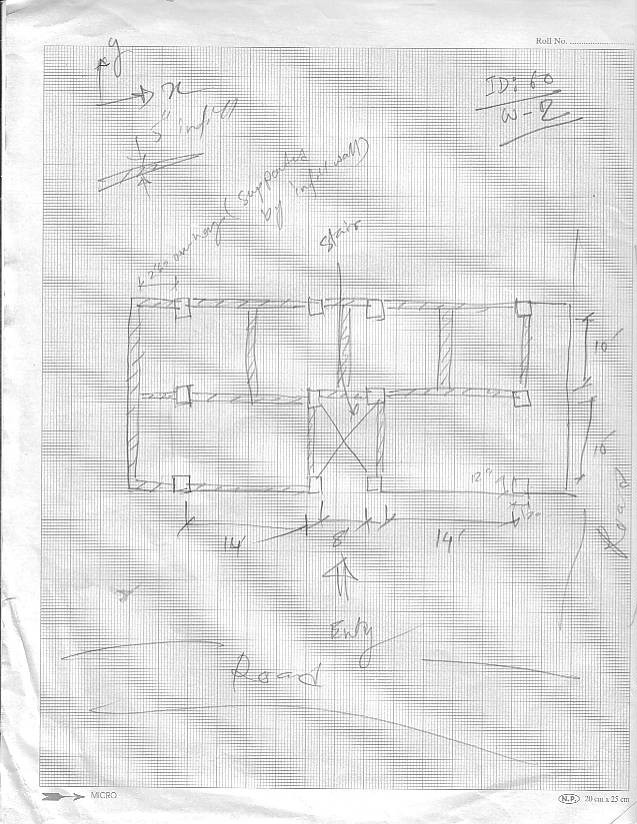 Roll No. ....................
y
x
ID: 60
W-2
5" infill
overhang (supported
by infill wall)
Stair
10'
10'
12"
14'
8'
14'
Road
Entry
Road
MICRO
N.P. 20 cm x 25 cm